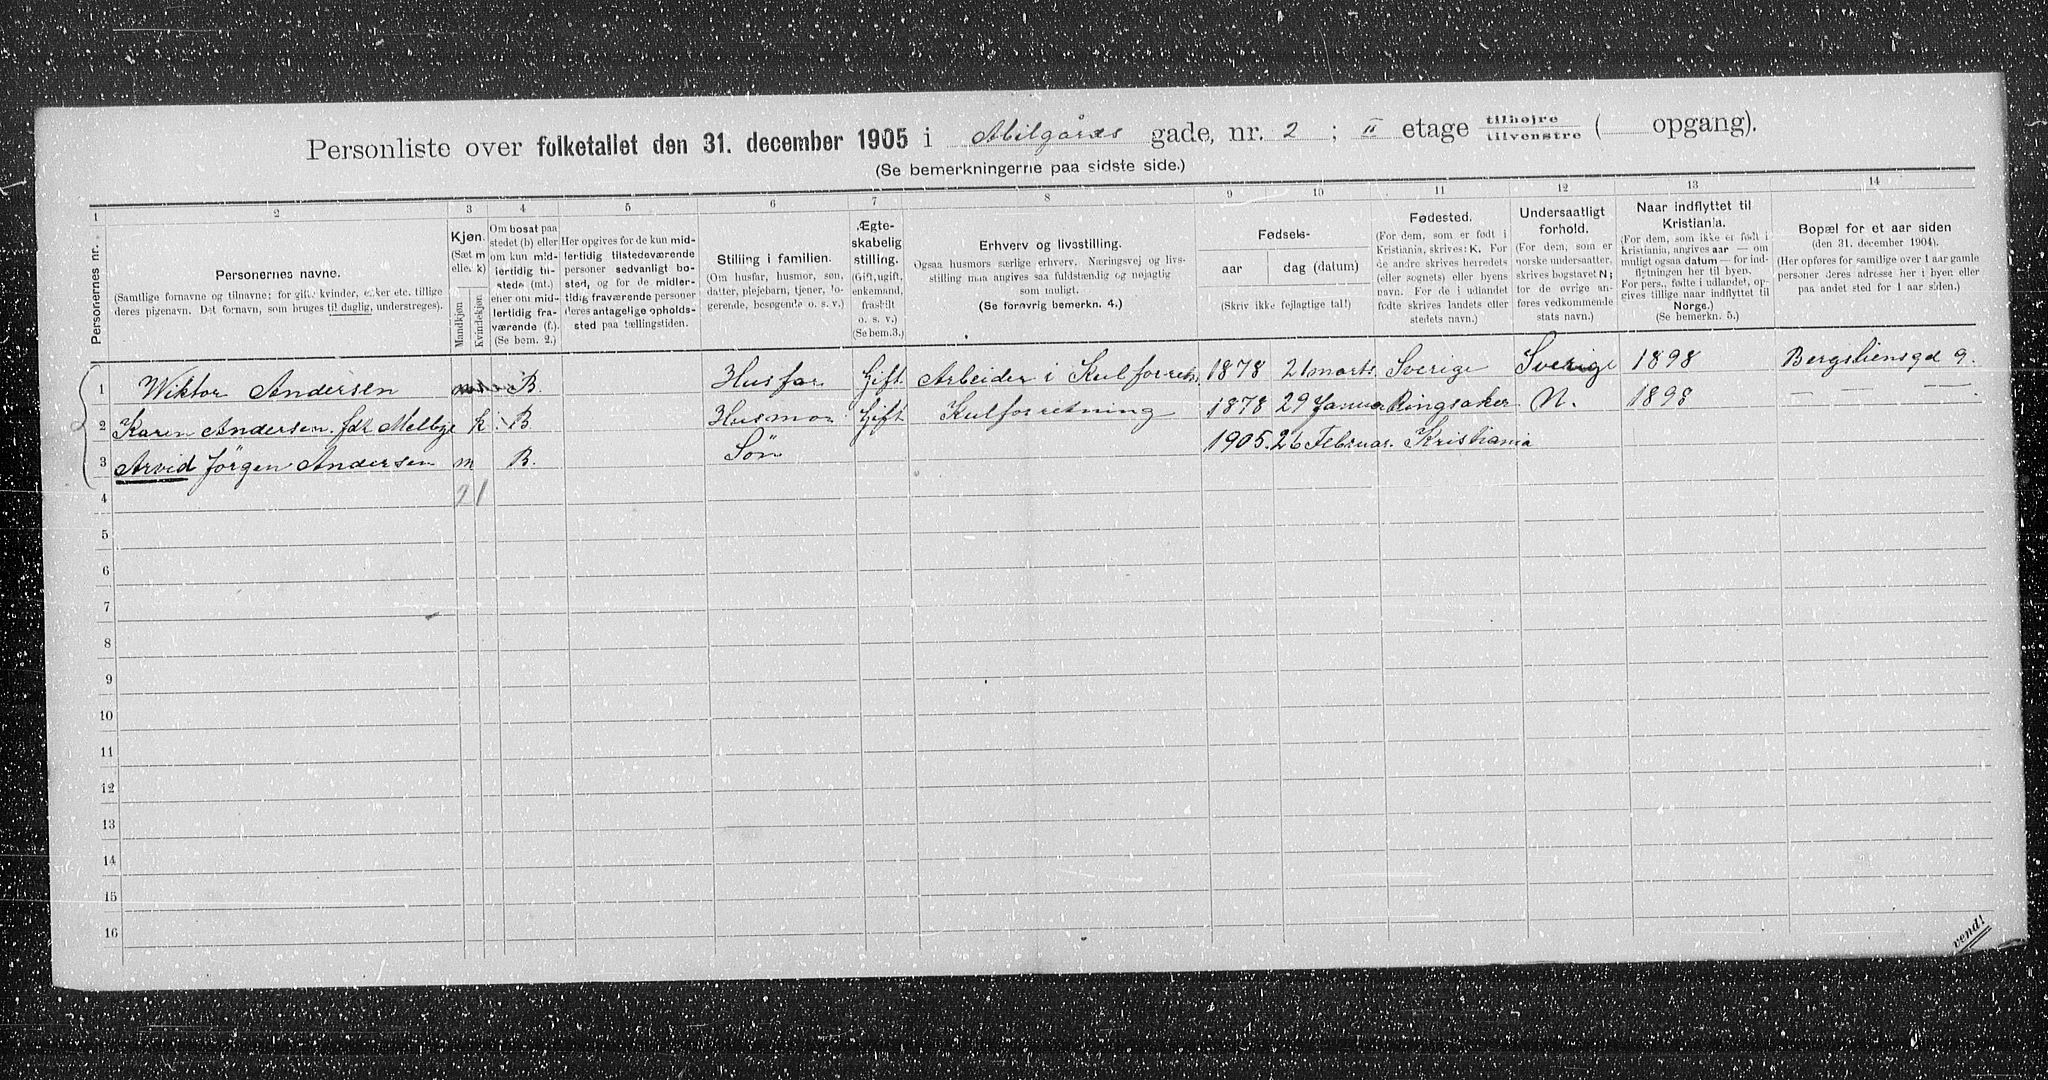 Personliste over folketallet den 31. december 1905 i Abilgårds gade, nr. 2 ; II etage tilhøjre tilvenstre ( opgang).
(Se bemerkningerne paa sidste side.)
1 2 3 4 5 6 7 8 9 10 11 12 13 14
Personernes nr.
Personernes navne.
(Samtlige fornavne og tilnavne; for gifte kvinder, enker etc. tillige
deres pigenavn. Det fornavn, som bruges til daglig, understreges).
Kjøn.
(Sæt m
eller k)
Mandkjøn
Kvindekjøn
Om bosat paa
stedet (b) eller
om kun mid-
lertidig til-
stede (mt.)
eller om mid-
lertidig fra-
værende (f.)
(Se bem. 2.)
Her opgives for de kun mid-
lertidig tilstedeværende
personer sedvanlig bo-
sted, og for de midler-
tidig fraværende personer
deres antagelige opholds-
sted paa tællingstiden.
Stilling i familien.
(Om husfar, husmor, søn,
datter, plejebarn, tjener, lo-
gerende, besøgende o. s. v.)
Ægte-
skabelig
stilling.
(Gift, ugift,
enkemand,
fraskilt
o. s. v.)
(Se bem.3.)
Erhverv og livsstilling.
Ogsaa husmors særlige erhverv. Næringsvej og livs-
stilling maa angives saa fuldstændig og nøjagtig
som muligt.
(Se forøvrig bemerkn. 4.)
Fødsels-
aar
dag (datum)
(Skriv ikke fejlagtige tal!)
Fødested.
(For dem, som er født i
Kristiania, skrives: K. For
de andre skrives herredets
(eller sognets) eller byens
navn. For de i udlandet
fødte skrives landets eller
stedets navn.)
Undersaatligt
forhold.
(For dem, som er
norske undersaatter,
skrives bogstavet N;
for de øvrige an-
føres vedkommende
stats navn.)
Naar indflyttet til
Kristiania.
(For dem, som ikke er født i
Kristiania, angives aar — om
muligt ogsaa datum — for ind-
flytningen her til byen.
For pers., fødte i udlandet, op-
gives tillige naar indflyttet til
Norge.)
(Se bemerkn. 5.)
Bopæl for et aar siden
(den 31. december 1904).
(Her opføres for samtlige over 1 aar gamle
personer deres adresse her i byen eller
paa andet sted for 1 aar siden.)
1 Wiktor Andersen B. Husfar Gift Arbeider i Kulforretn. 1878 21 marts. Sverige Sverige 1898 Bergsliensgd 9.
2 Karen Andersen. fdt Melbye k B Husmor Gift Kulforretning 1878 29 Januar Ringsaker N. 1898 — — — .
3 Arvid Jörgen Andersen m B. Sön 1905. 26 Februar. Kristiania
4 2 1
5
6
7
8
9
10
11
12
13
14
15
16
vend!